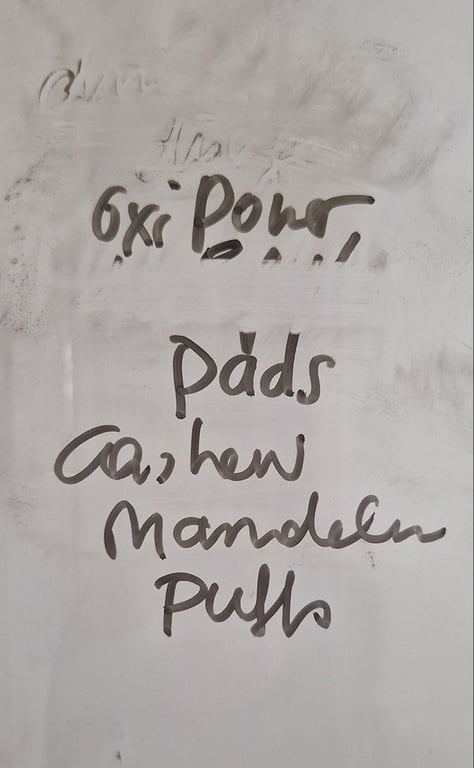 Oxi Power
Pads
Cashew
Mandeln
Puffs